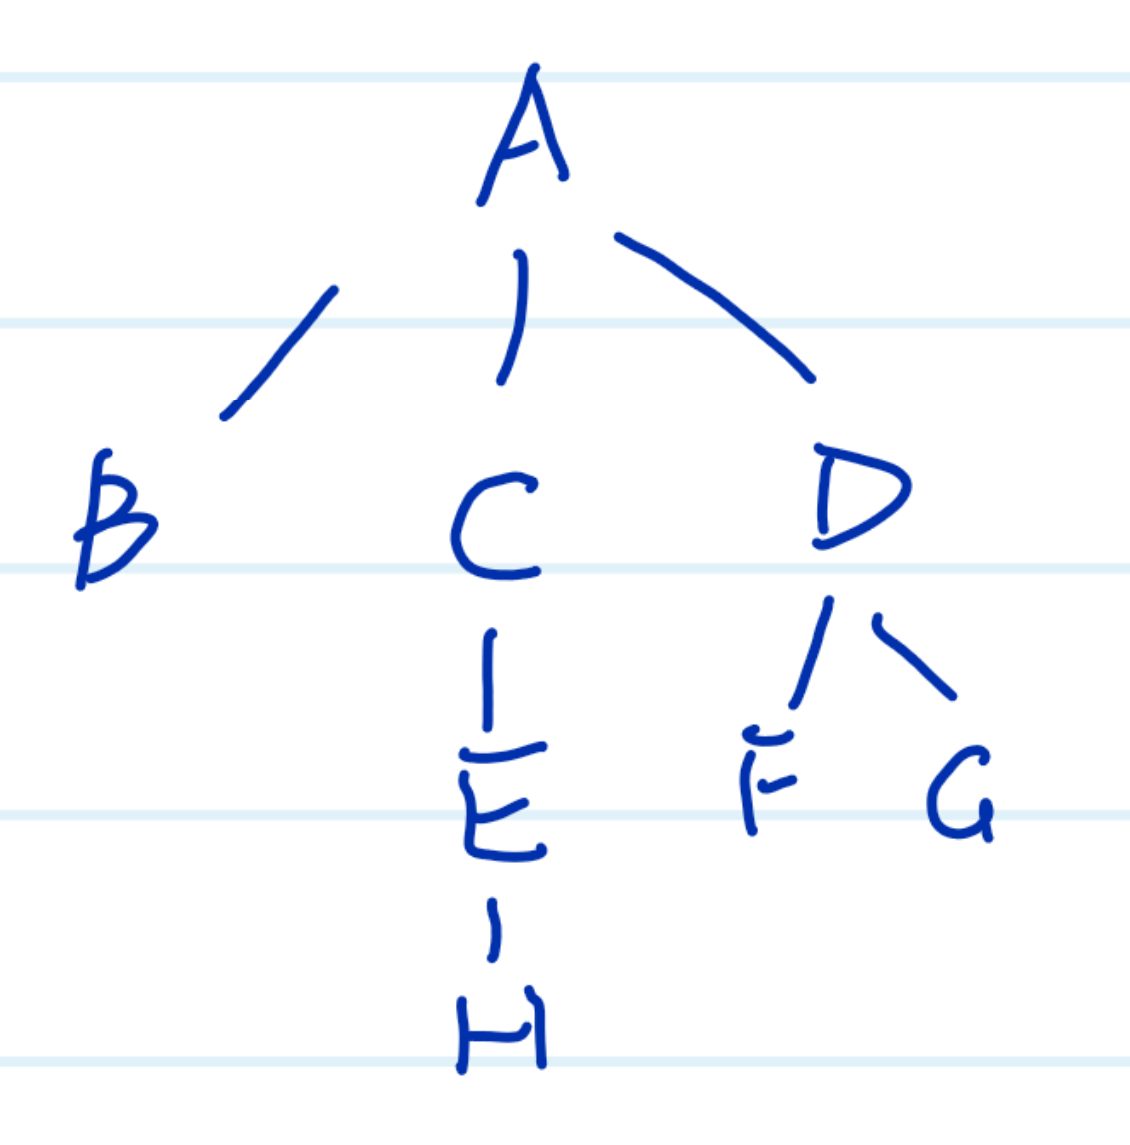 A
B C D
E F G
H